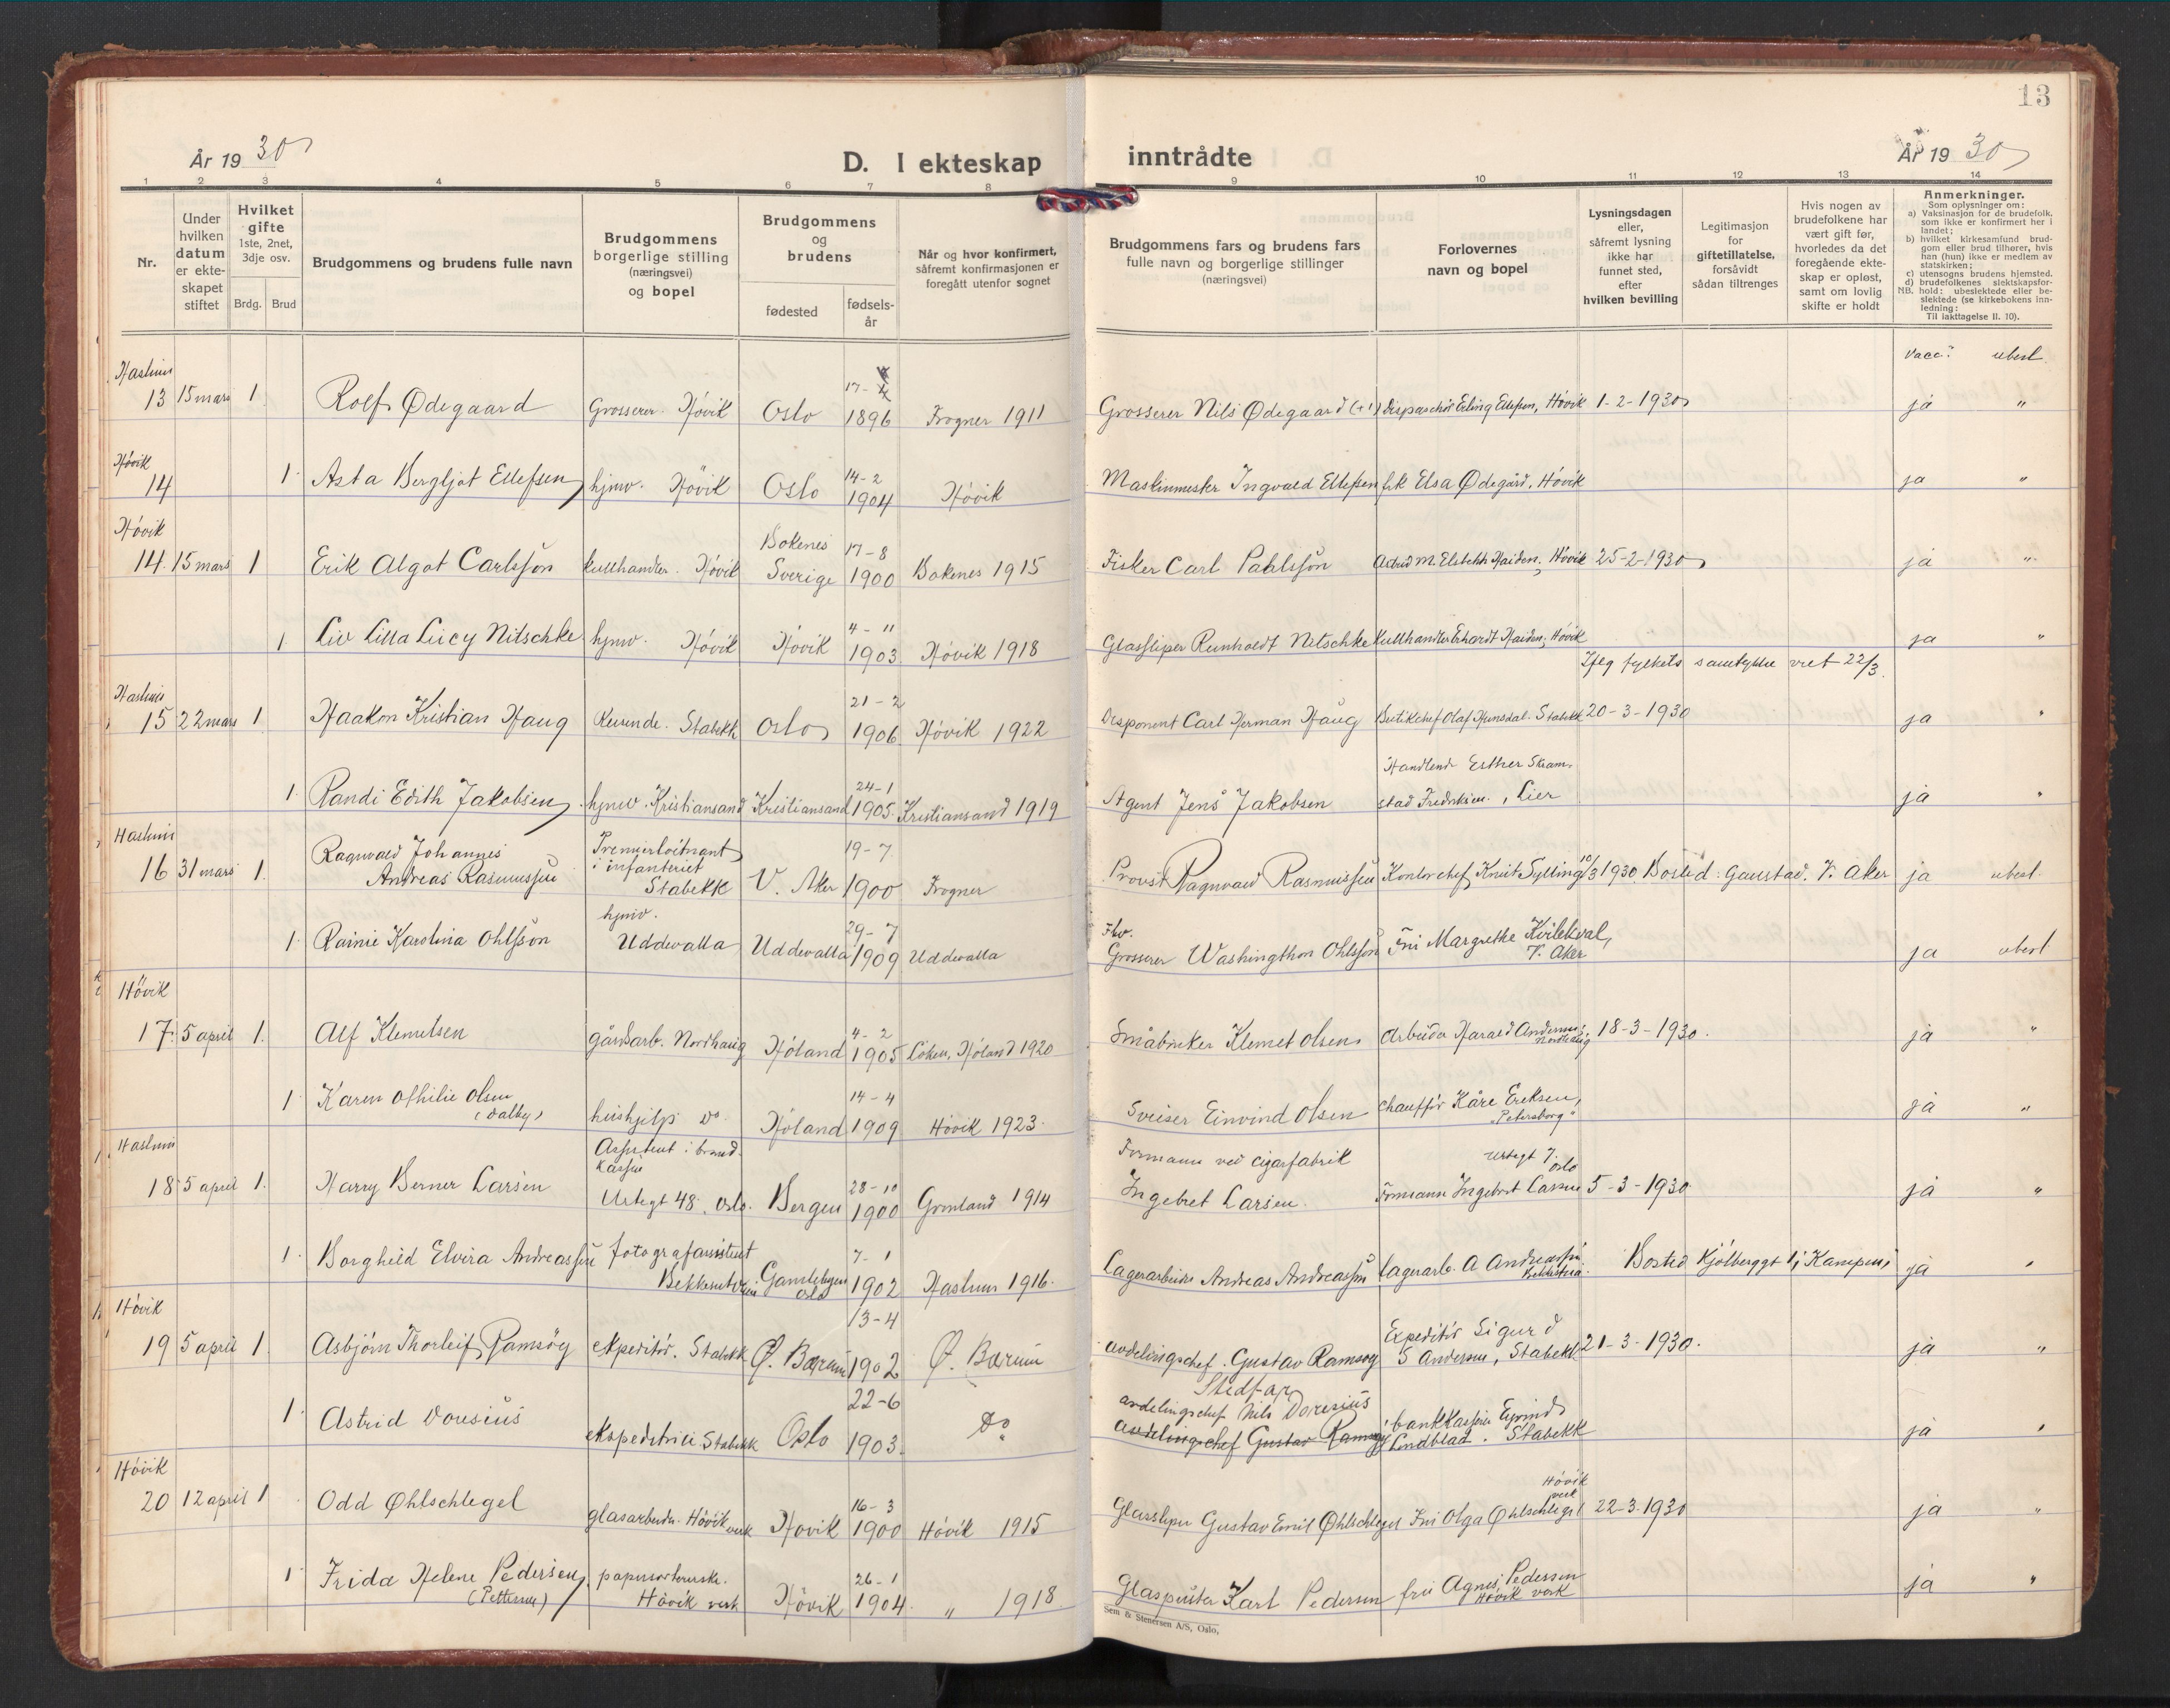 13
År 1930
D. I ekteskap inntrådte
År 1930
1 2 3 4 5 6 7 8 9 10 11 12 13 14
Nr.
Under hvilken datum er ekteskapet stiftet
Hvilket gifte 1ste, 2net, 3dje osv.
Brdg. Brud
Brudgommens og brudens fulle navn
Brudgommens borgerlige stilling (næringsvei) og bopel
Brudgommens og brudens
fødested
fødsels-år
Når og hvor konfirmert, såfremt konfirmasjonen er foregått utenfor sognet
Brudgommens fars og brudens fars fulle navn og borgerlige stillinger (næringsvei)
Forlovernes navn og bopel
Lysningsdagen eller, såfremt lysning ikke har funnet sted, efter hvilken bevilling
Legitimasjon for giftetillatelse, forsåvidt sådan tiltrenges
Hvis nogen av brudefolkene har vært gift før, hvorledes da det foregående ekteskap er opløst, samt om lovlig skifte er holdt
Anmerkninger.
Som oplysninger om:
a) Vaksinasjon for de brudefolk, som ikke er konfirmert her i landet;
b) hvilket kirkesamfund brudgom eller brud tilhører, hvis han (hun) ikke er medlem av statskirken;
c) utensogns brudens hjemsted.
d) brudefolkenes slektskapsforhold: ubeslektede eller beslektede (se kirkebokens innledning:
NB.
Til iakttagelse II. 10).
vacc. ubesl.
Haslum
13 15 mars 1 Rolf Ødegaard Grosserer. Høvik Oslo 17- 1896 Frogner 1911 Grosserer Nils Ødegaard (+) Dispaschør Erling Ellefsen, Høvik 1-2-1930 ja "
Høvik
14 1 Asta Bergljot Ellefsen hjmv. Høvik Oslo 14-2 1904 Høvik Maskinmester Ingvald Ellefsen frk Elsa Ødegård, Høvik ja "
Høvik
14. 15 mars 1 Erik Algot Carlsson kullhandler. Høvik Bokenes Sverige 17-8 1900 Bokenes 1915 Fisker Carl Pahlsson Astrid M. Elsbeth Haiden, Høvik 25-2-1930 ja "
1 Liv Lilla Lucy Nitschke hjmv. Høvik Høvik 4-11 1903 Høvik 1918 Glassliper Reinholdt Nitschke Kullhandler Erhardt Haiden, Høvik ja "
Ifølg fylkets samtykke viet 22/3.
Haslum
15 22 mars 1 Haakon Kristian Haug Stabekk Oslo 21-2 1906 Høvik 1922 Disponent Carl Herman Haug Butikchef Olaf Stabekk 20-3-1930 ja "
1 Randi Edith Jakobsen hjmv. Kristiansand Kristiansand 24-1 1905 Kristiansand 1919 Agent Jens Jakobsen Handlende Esther Skramstad Fredriksen, Lier ja "
Haslum
16 31 mars 1 Ragnvald Johannes Andreas Rasmussen Premierløitnant i infanteriet Stabekk V. Aker 19-7 1900 Frogner Provst Ragnvald Rasmussen Kontorchef Knut Sylling 10/3 1930. Bosted: Gaustad. V. Aker ja ubesl.
1 Rainie Karolina Ohlsson hjmv. Uddevalla Uddevalla 29-7 1909 Uddevalla Grosserer Washingthon Ohlsson Fru Margrethe Kvilekval, V. Aker ja ubesl
Høvik
17. 5 april 1. Alf Klemetsen gårdsarb. Nordhaug Høland 4-2 1905 Løken, Høland 1920 Småbruker Klemet Olsen Arbeider Harald Andersen, Nordhaug 18-3-1930. ja "
1 Karen Othilie Olsen (Dalby) hushjelp do. Høland 14-4 1909 Høvik 1923. Sveiser Einvind Olsen Chauffør Kåre Eriksen, "Petersborg" ja "
Haslum
18 5 april 1. Harry Berner Larsen Assistent i brandkasse Urtegt 48. Oslo. Bergen 28-10 1900 Grønland 1914 Formann ved cigarfabrik Ingebret Larsen. Formann Ingebret Larsen Urtegt 7. Oslo 5-3-1930 ja "
1. Borghild Elvira Andreassen fotografassistent Gamlebyen Oslo 7-1 1902 Haslum 1916. Lagerarbeider Andreas Andreassen Lagerarb. A Andreassen Bosted Kjølberggt 1, Kampen ja "
Høvik
19 5 april 1 Asbjørn Thorleif Ramsøg ekspeditør. Stabekk Ø. Bærum 13-4 1902 Ø. Bærum avdelingschef. Gustav Ramsøg Expeditør Sigurd S Andersen, Stabekk 21-3-1930. ja "
1. Astrid Doresius ekspeditrise Stabekk Oslo 22-6 1903. do Stedfar avdelingschef Nils Doresius avdelingschef Gustav Ramsøg bankkasserer Eyvind Lindblad. Stabekk ja "
Høvik
20 12 april 1 Odd Øhlschlegel glasarbeider. Høvik verk Høvik 16-3 1900 Høvik 1915 Glassliper Gustav Emil Øhlschlegel Fru Olga Øhlschlegel Høvik verk 22-3-1930 ja "
1 Frida Helene Pedersen (Pettersen) papirsorterske. Høvik verk Høvik 26-1 1904. " 1918 Glaspuster Karl Pedersen fru Agnes Pedersen Høvik verk ja "
Sem & Stenersen A/S, Oslo,